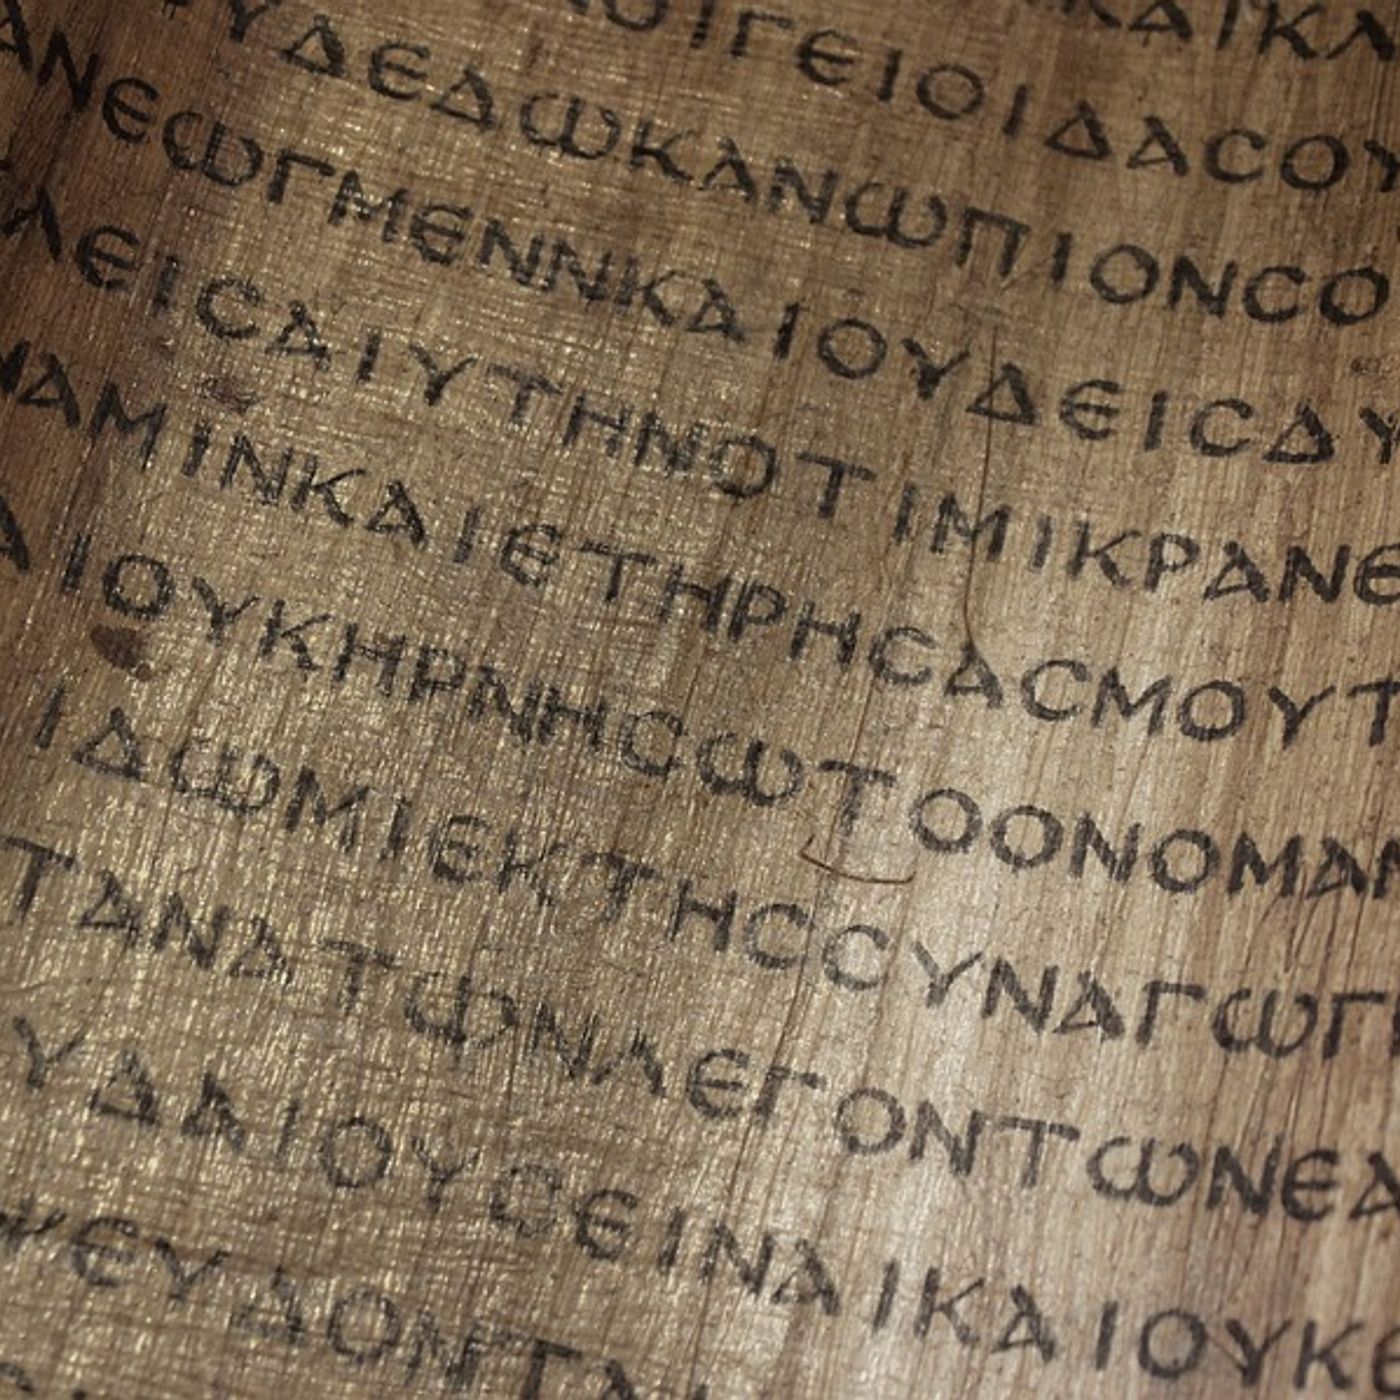 ΚΑΙΚΛ
ΟΙΓΕΙΟΙΔΑCΟΥ
ΥΔΕΔΩΚΑΝΩΠΙΟΝCΟ
ΑΝΕΩΓΜΕΝΝΚΑΙΟΥΔΕΙCΔΥ
ΛΕΙCΑΙΥΤΗΝΟΤΙΜΙΚΡΑΝΕ
ΝΑΜΙΝΚΑΙΕΤΗΡΗCΑCΜΟΥΤ
ΑΙΟΥΚΗΡΝΗCΩΤΟΟΝΟΜΑΝ
ΙΔΩΜΙΕΚΤΗCCΥΝΑΓΩΓ
ΤΑΝΑΤΩΝΛΕΓΟΝΤΩΝΕΑ
ΥΔΑΙΟΥCΕΙΝΑΙΚΑΙΟΥΚΕ
ΨΕΥΔΟΝΤΑΙ